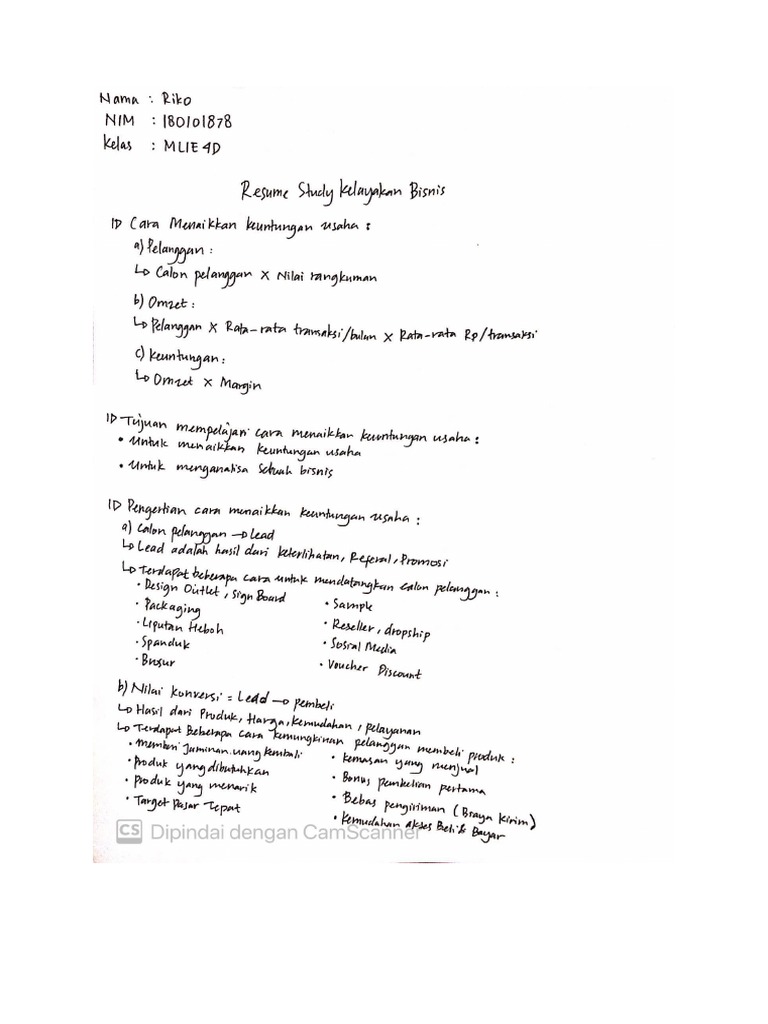 Nama : Riko
NIM : 180101878
Kelas : MLIE 4D
Resume Study Kelayakan Bisnis
1D Cara Menaikkan keuntungan usaha :
a) Pelanggan :
↳ Calon pelanggan x Nilai rangkuman
b) Omzet :
↳ Pelanggan x Rata-rata transaksi/bulan x Rata-rata Rp/transaksi
c) Keuntungan :
↳ Omzet x Margin
1D Tujuan mempelajari cara menaikkan keuntungan usaha :
• Untuk menaikkan keuntungan usaha
• Untuk menganalisa sebuah bisnis
1D Pengertian cara menaikkan keuntungan usaha :
a) Calon pelanggan → Lead
↳ Lead adalah hasil dari keterlihatan, Referal, Promosi
↳ Terdapat beberapa cara untuk mendatangkan calon pelanggan :
• Design Outlet, Sign Board
• Packaging
• Liputan Heboh
• Spanduk
• Brosur
• Sample
• Reseller, dropship
• Sosial Media
• Voucher Discount
b) Nilai konversi = Lead → pembeli
↳ Hasil dari Produk, Harga, Kemudahan, pelayanan
↳ Terdapat Beberapa cara kemungkinan pelanggan membeli produk :
• Memberi Jaminan uang kembali
• Produk yang dibutuhkan
• Produk yang menarik
• Target Pasar Tepat
• Kemasan yang menjual
• Bonus pembelian pertama
• Bebas pengiriman (Biaya Kirim)
• Kemudahan akses Beli & Bayar
CS Dipindai dengan CamScanner